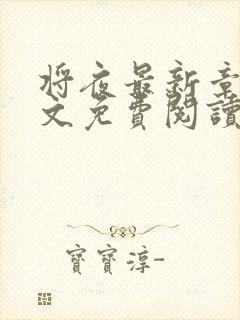 將夜最新章
文免費閱讀
寶寶淳-